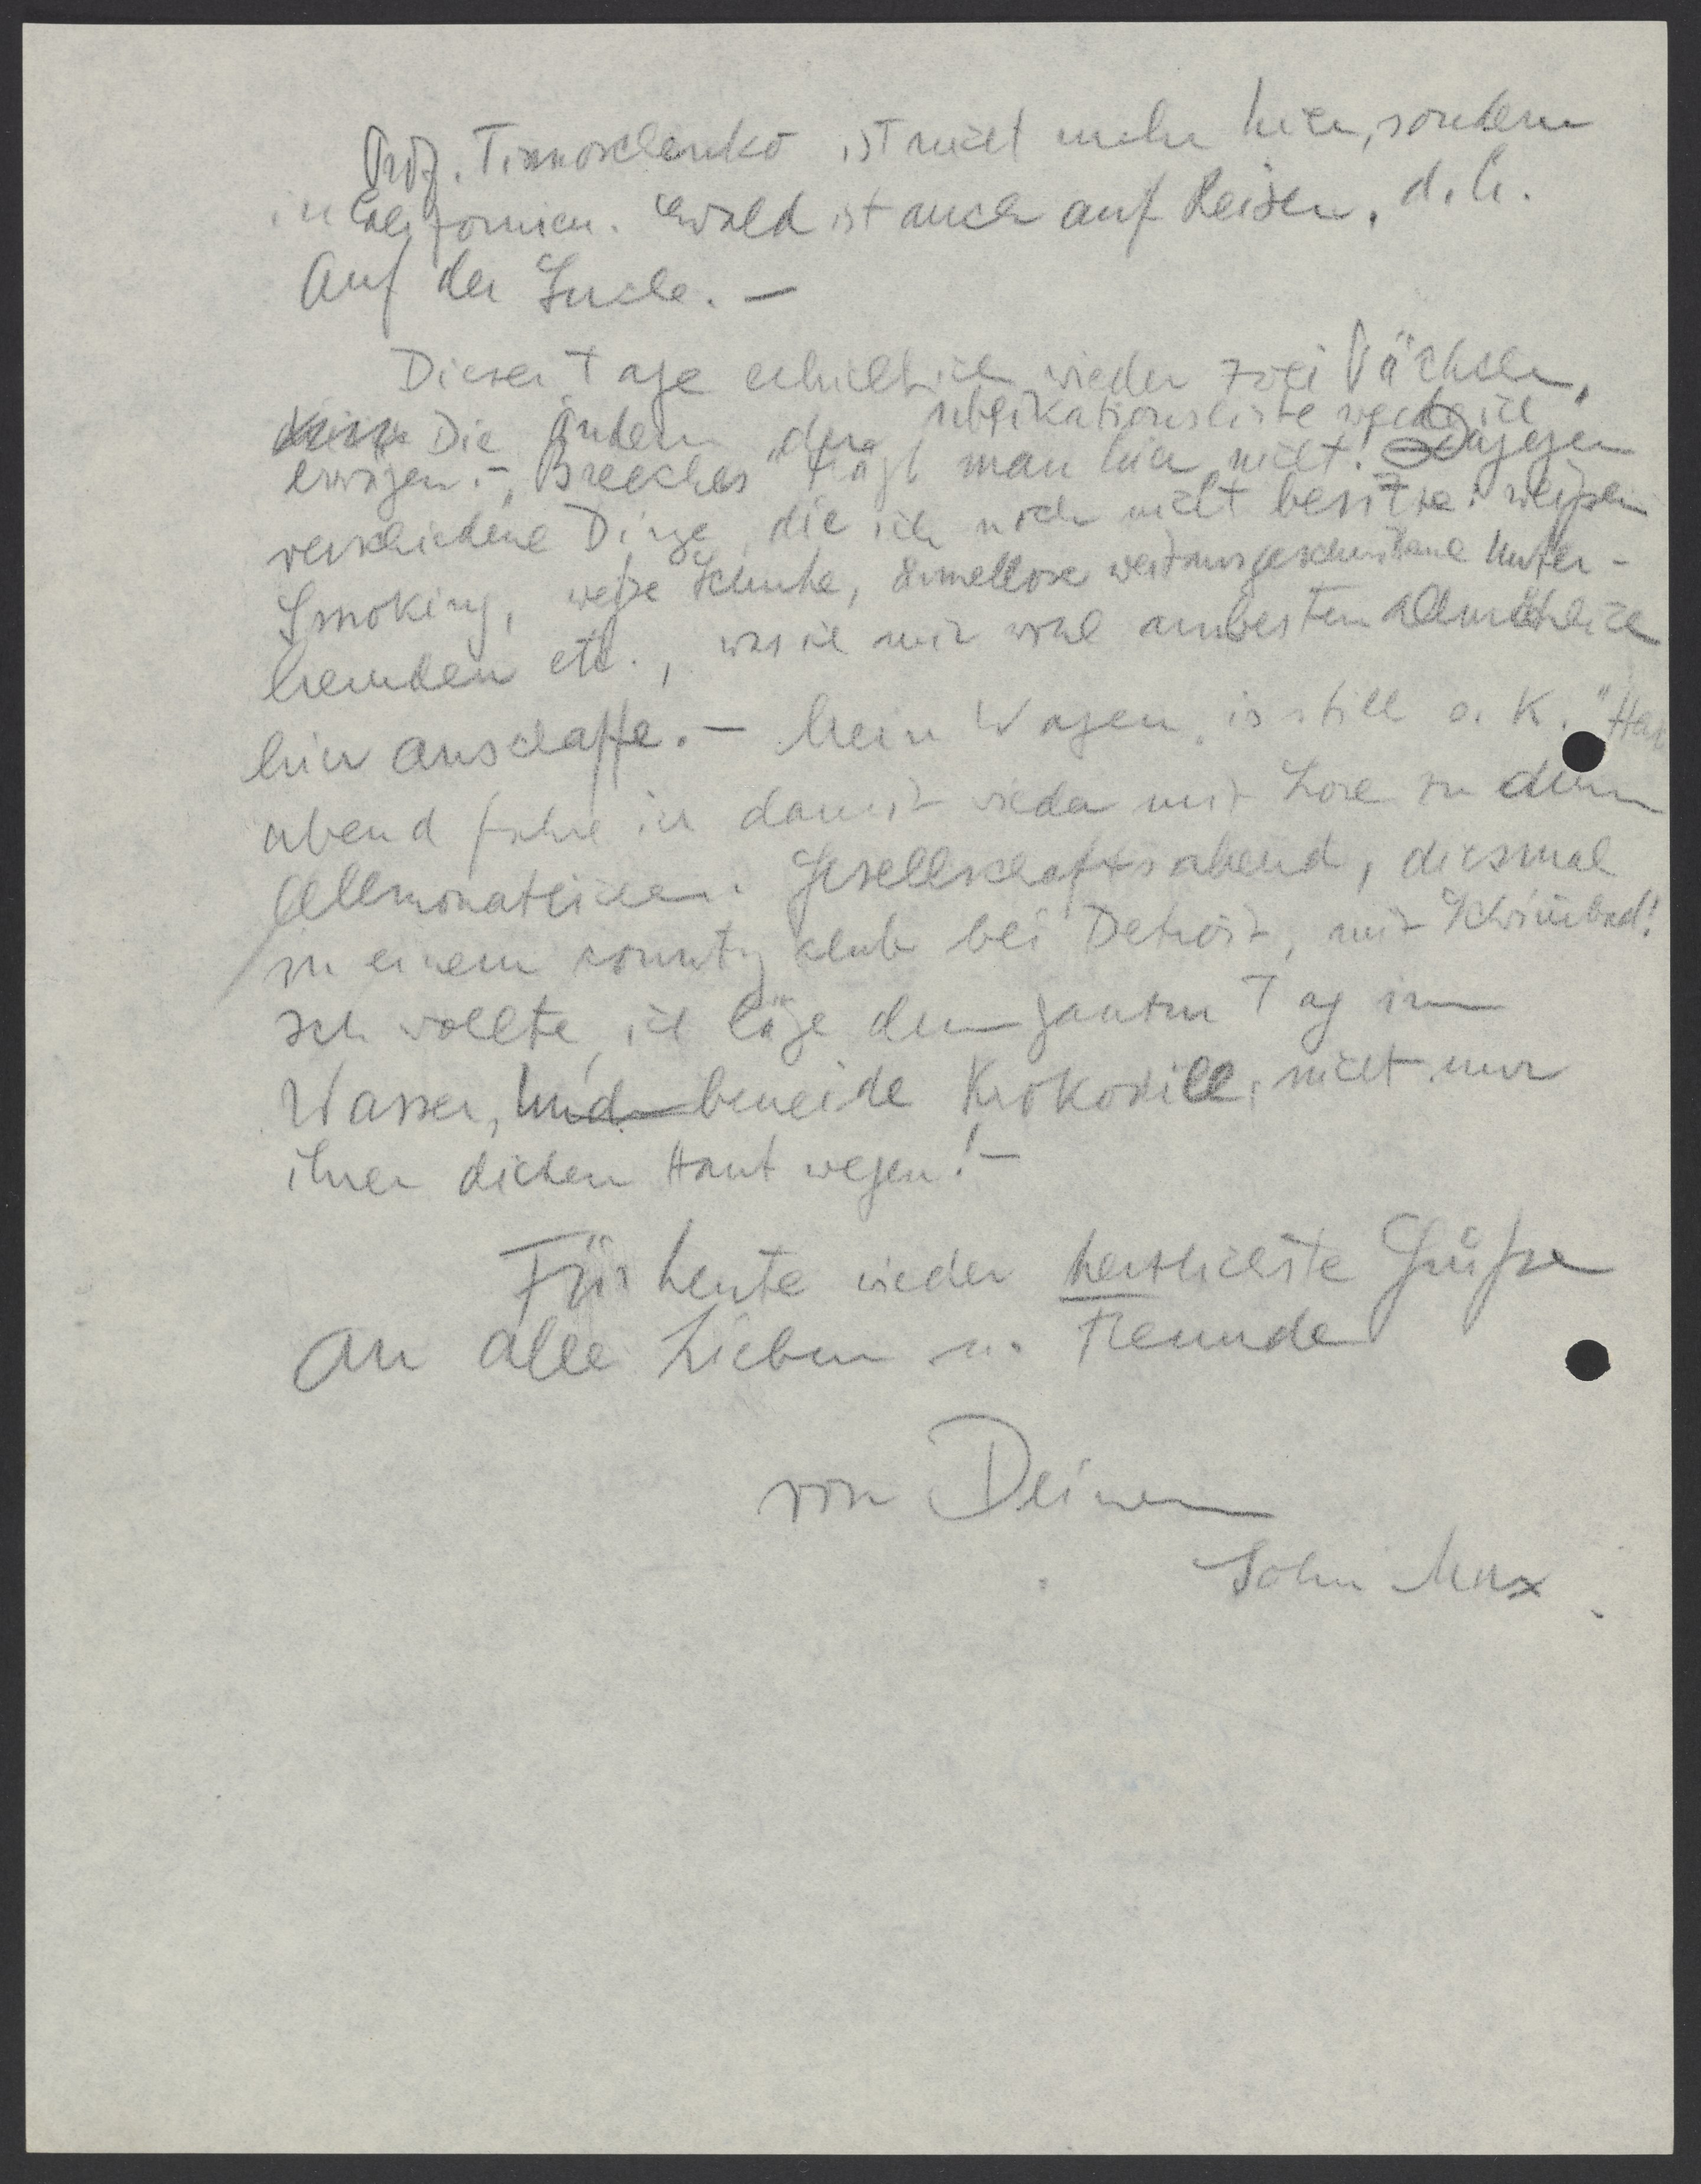 Prof. Timoschenko ist nicht mehr hier, sondern
in Californien. Ewald ist auch auf Reisen, d. h.
Auf der Suche. —
Dieser Tage erhielt ich wieder zwei Päckchen.
Die Ändern der Publikationsliste werde ich
erwägen. – „Breeches" trägt man hier nicht! Dagegen
verschiedene Dinge, die ich noch nicht besitze: weißen
Smoking, weiße Schuhe, ärmellose weitausgeschnittene Unter-
hemden etc., was ich mir wohl am besten allmählich
hier anschaffe. — Mein Wagen „is still o. K." Heu
abend fahre ich damit wieder mit Lore zu dem
Allmonatlichen Gesellschaftsabend, diesmal
in einem country club bei Detroit, mit Schwimmbad!
Ich wollte, ich läge den ganzen Tag im
Wasser, und beneide Krokodille, nicht nur
ihrer dicken Haut wegen! —
Für heute wieder herzlichste Grüße
an alle Lieben u. Freunde
von Deinem
Sohn Max.